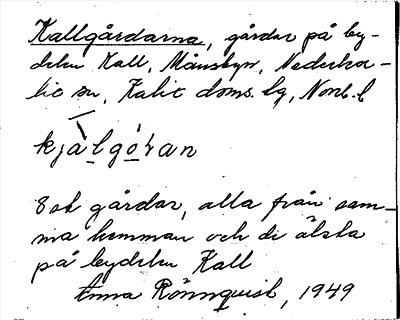 Kallgårdarna, gårdar på by-
delen Kall, Månsbyn, Nederka-
lix sn, Kalix doms. lg, Norrb. l
kjàlgó̱ṙan
8 st gårdar, alla från sam-
ma hemman och de älsta
på bydelen Kall
Anna Rönnquist, 1949